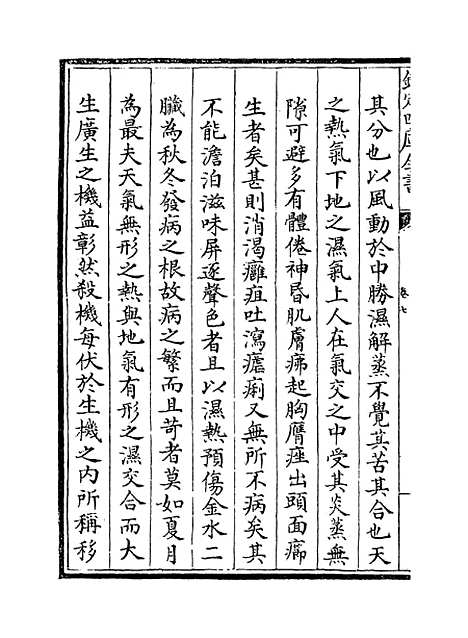 欽定四庫全書
卷七
其分也以風動於中勝濕解蒸不覺其苦其合也天
之熱氣下地之濕氣上人在氣交之中受其炎蒸無
隙可避多有體倦神昏肌膚疿起胸膺痤出頭面癤
生者矣甚則消渴癰疽吐瀉瘧痢又無所不病矣其
不能澹泊滋味屏逐聲色者且以濕熱預傷金水二
臟為秋冬發病之根故病之繁而且苛者莫如夏月
為最夫天氣無形之熱與地氣有形之濕交合而大
生廣生之機益彰然殺機每伏於生機之內所稱移